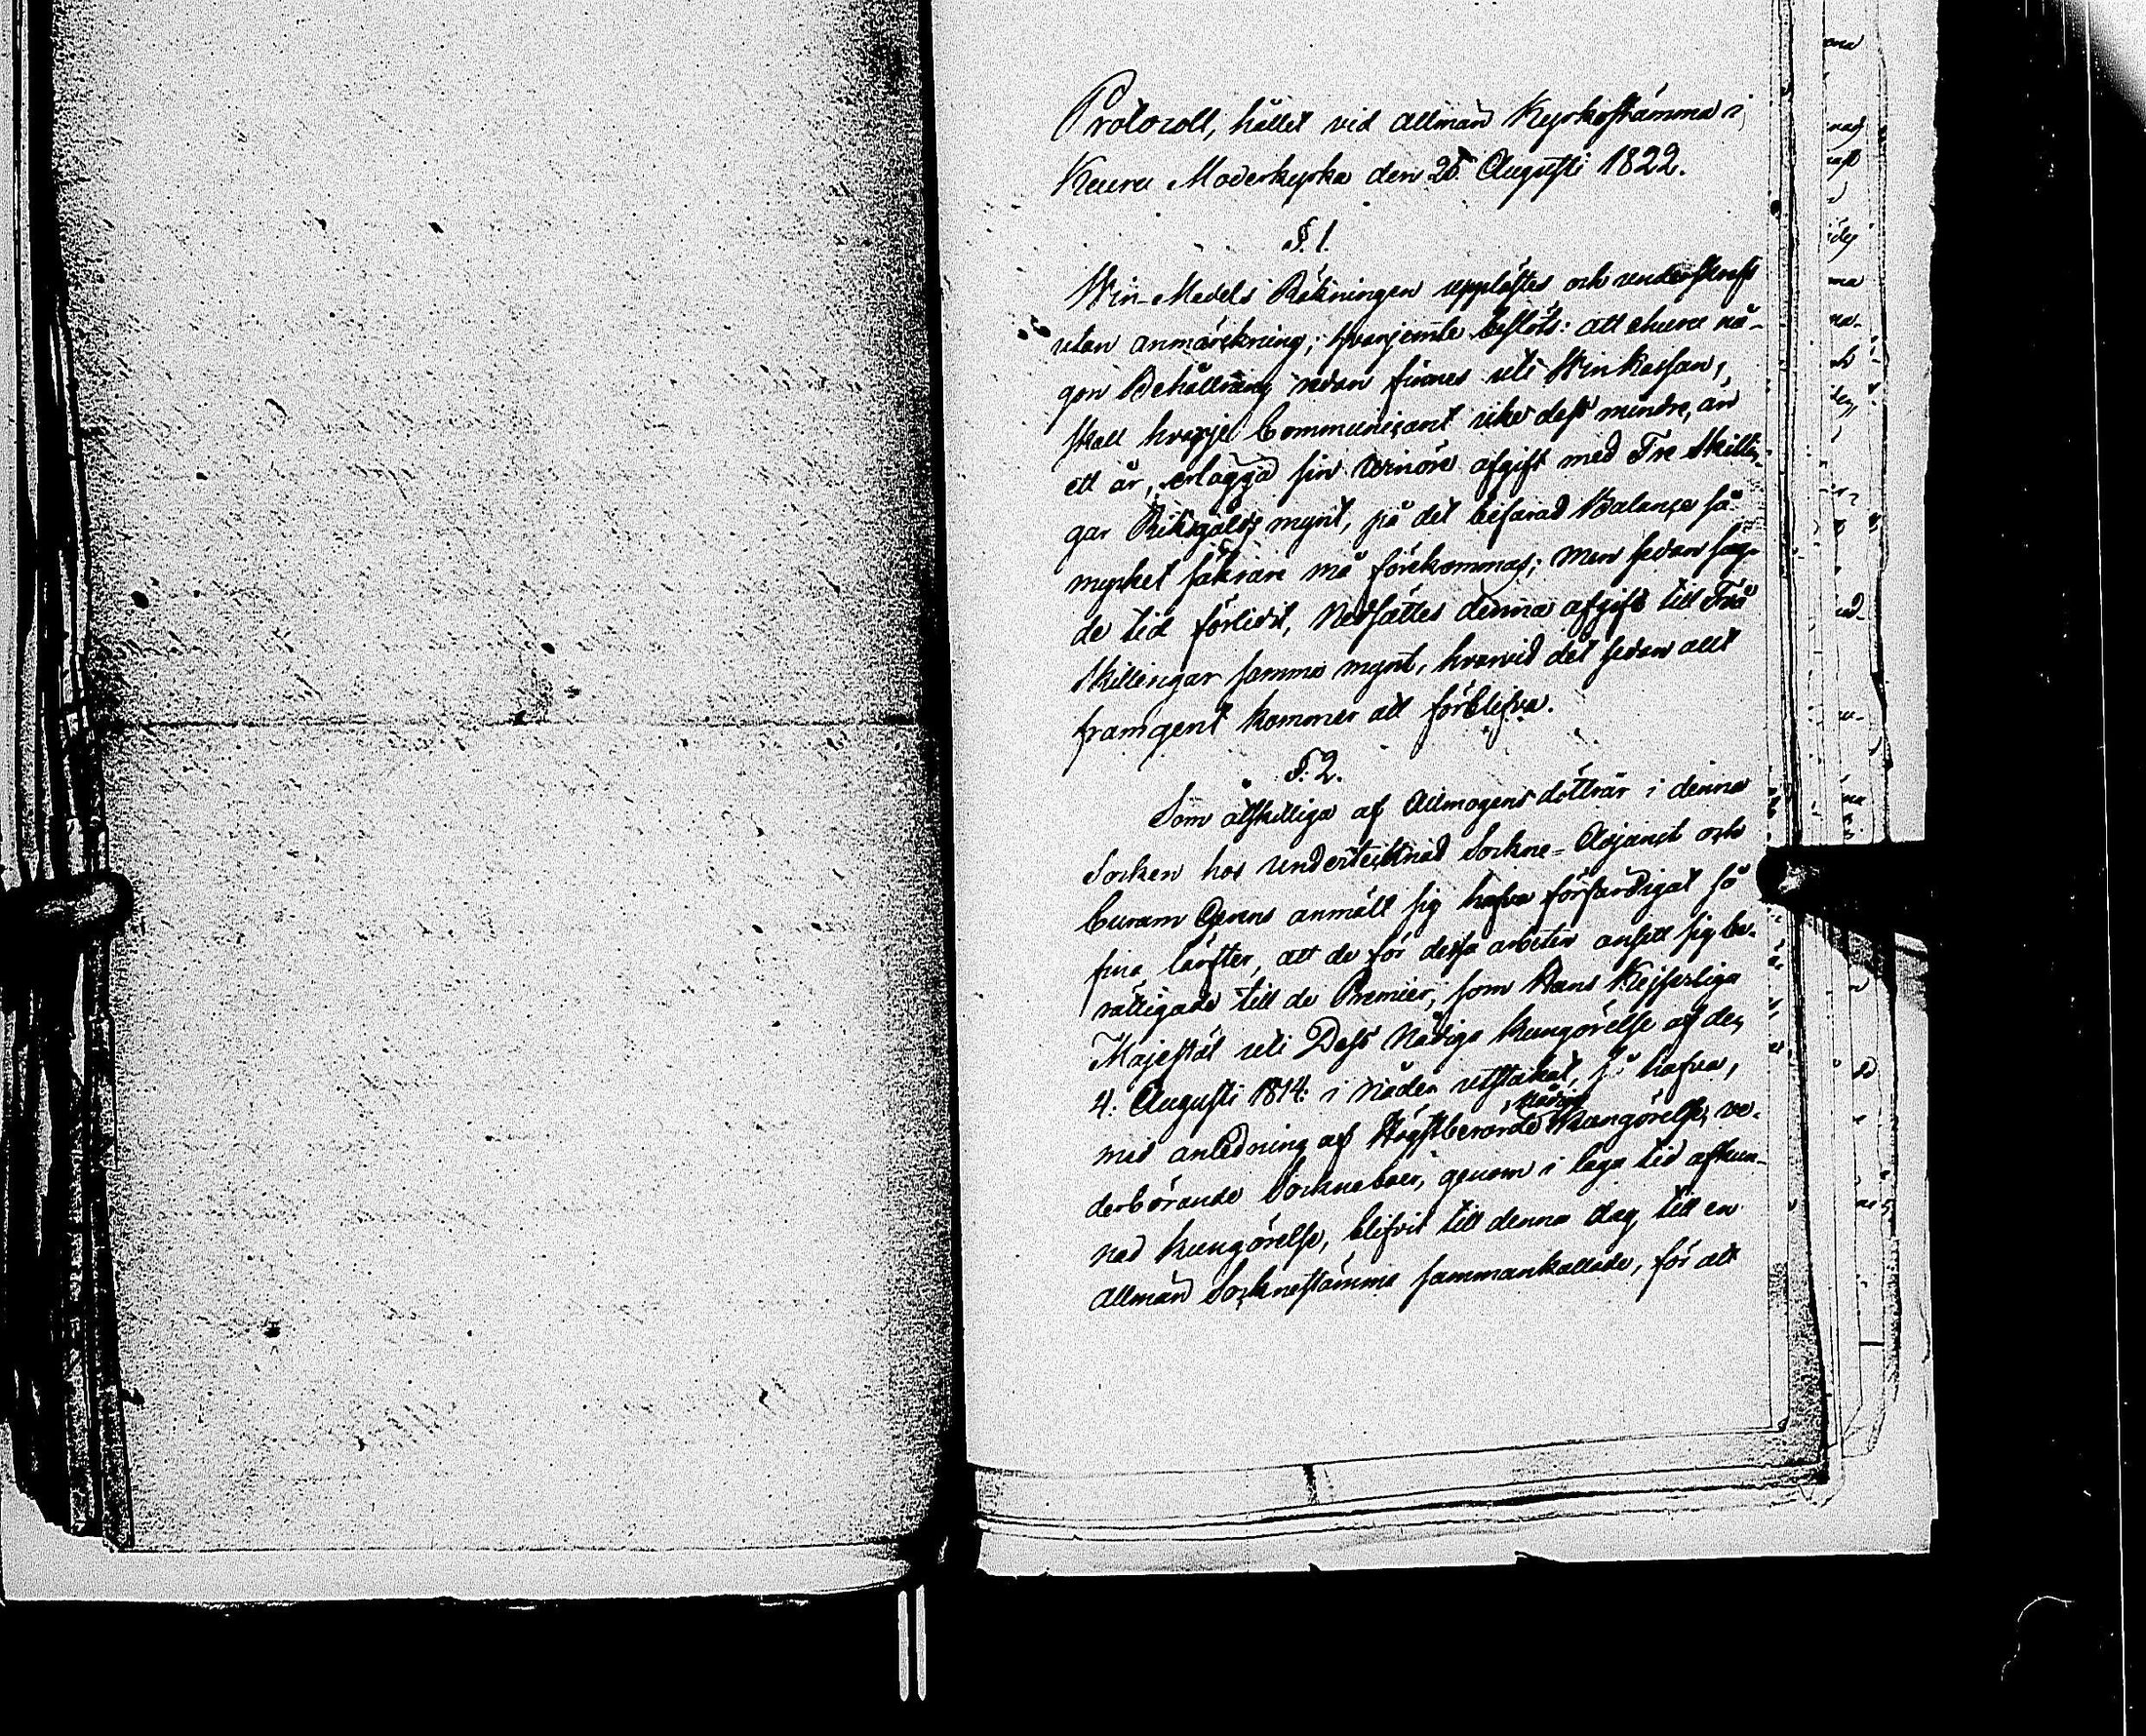 Protocoll, hållet vid allmän Kyrkostämma i
Keuru Moderkyrka den 25 Augusti 1822.
§. 1.
Win-Medels Räkningen upplästes och underskrefs
utan anmärckning; hvarjemte beslöts: att ehuru nå-
gon Behållning redan finnes uti Winkassan,
skall hvarje Communicant icke dess mindre, än
ett år, erlägga sin Winöre afgift med Tre Skillin-
gar Riksgälds mynt, på det befarad Balance så
mycket säkrare må förekommas; men sedan sag-
de tid förlidit, nedsättes denna afgift till Två
Skillingar samma mynt, hvarvid det sedan allt
framgent kommer att förblifva.
§. 2.
Som åtskilliga af Allmogens döttrar i denna
Socken hos undertecknad Sockne-Adjunct och
Curam Gerens anmält sig hafva förfärdigat så
fina lärfter, att de för dessa arbeten ansett sig be-
rättigade till de Premier, som Hans Kejserliga
Majestät uti Dess Nådiga Kungörelse af den
4. Augusti 1814 i Nåder utstakat, så hafva,
med anledning af Högstberörde Nådiga Kungörelse, ve-
derbörande Sockneboer, genom i laga tid afkun-
nad kungörelse, blifvit till denna dag till en
allmän Socknestämma sammankallade, för att